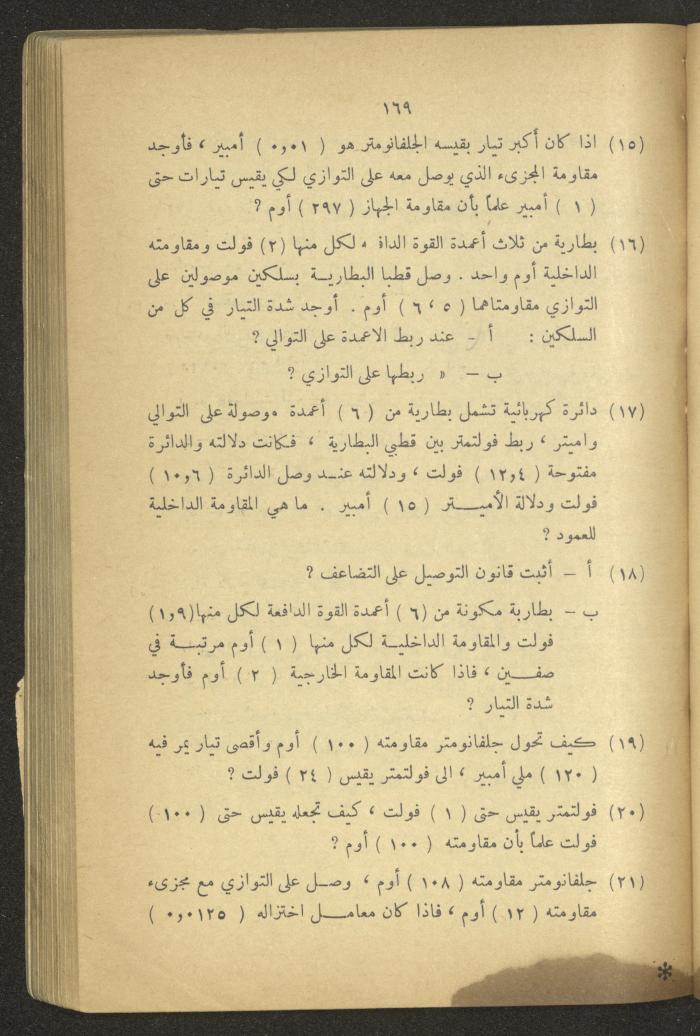 ١٦٩
(١٥) اذا كان أكبر تيار بقيسه الجلفانومتر هو ( ٠,٠١ ) أمبير ، فأوجد
مقاومة المجزىء الذي يوصل معه على التوازي لكي يقيس تيارات حتى
( ١ ) أمبير علماً بأن مقاومة الجهاز ( ٢٩٧ ) أوم ?
(١٦) بطارية من ثلاث أعمدة القوة الدافـ ـه لكل منها (٢) فولت ومقاومته
الداخلية أوم واحد . وصل قطبا البطاريـة بسلكين موصولين على
التوازي مقاومتاهما ( ٥ ، ٦ ) أوم . أوجد شدة التيار في كل من
السلكين : أ - عند ربط الاعمدة على التوالي ?
ب - « ربطها على التوازي ?
(١٧) دائرة كهربائية تشمل بطارية من ( ٦ ) أعمدة موصولة على التوالي
واميتر ، ربط فولتمتر بين قطبي البطارية ، فكانت دلالته والدائرة
مفتوحة ( ١٢,٤ ) فولت ، ودلالته عنـد وصل الدائرة ( ١٠,٦ )
فولت ودلالة الأميـتر ( ١٥ ) أمبير . ما هي المقاومة الداخلية
للعمود ?
(١٨) أ - أثبت قانون التوصيل على التضاعف ?
ب - بطاربة مكونة من (٦ ) أعمدة القوة الدافعة لكل منها(١,٩)
فولت والمقاومة الداخليـة لكل منها ( ١ ) أوم مرتبـة في
صفـين ، فاذا كانت المقاومة الخارجية ( ٢ ) أوم فأوجد
شدة التيار ?
(١٩) كيف تحول جلفانومتر مقاومته ( ١٠٠ ) أوم وأقصى تيار يمر فيه
( ١٢٠ ) ملي أمبير ، الى فولتمتر يقيس ( ٢٤ ) فولت ?
(٢٠) فولتمتر يقيس حتى ( ١ ) فولت ، كيف تجعله يقيس حتى ( ١٠٠ )
فولت علماً بأن مقاومته ( ١٠٠ ) أوم ?
(٢١) جلفانومتر مقاومته ( ١٠٨ ) أوم ، وصـل على التوازي مع مجزىء
مقاومته ( ١٢ ) أوم ، فاذا كان معامـل اختزاله ( ٠,٠١٢٥ )